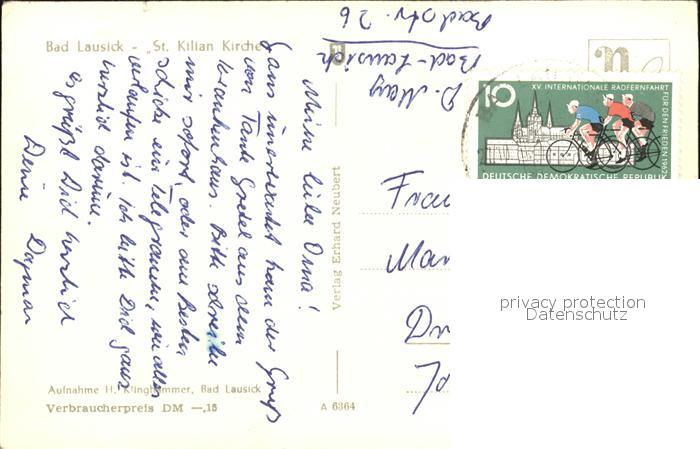 Bad Lausick - „St. Kilian Kirche"
Meine liebe Oma!
Ganz unerwartet kam der Gruß
von Tante Gretel aus dem
Krankenhaus. Bitte schreibe
mir sofort, oder am besten
schicke ein Telegramm, wie alles
verlaufen ist. Ich bitte Dich ganz
herzlich darum.
Es grüßt Dich herzlich
Deine Dagmar
Aufnahme H. Klinghammer, Bad Lausick
Verbraucherpreis DM —,15
Verlag Erhard Neubert
A 6364
D. May
Bad-Lausick
Badstr. 26
10
XV INTERNATIONALE RADFERNFAHRT
FÜR DEN FRIEDEN 1962
DEUTSCHE DEMOKRATISCHE REPUBLIK
Frau
Mar
Dr
privacy protection
Datenschutz